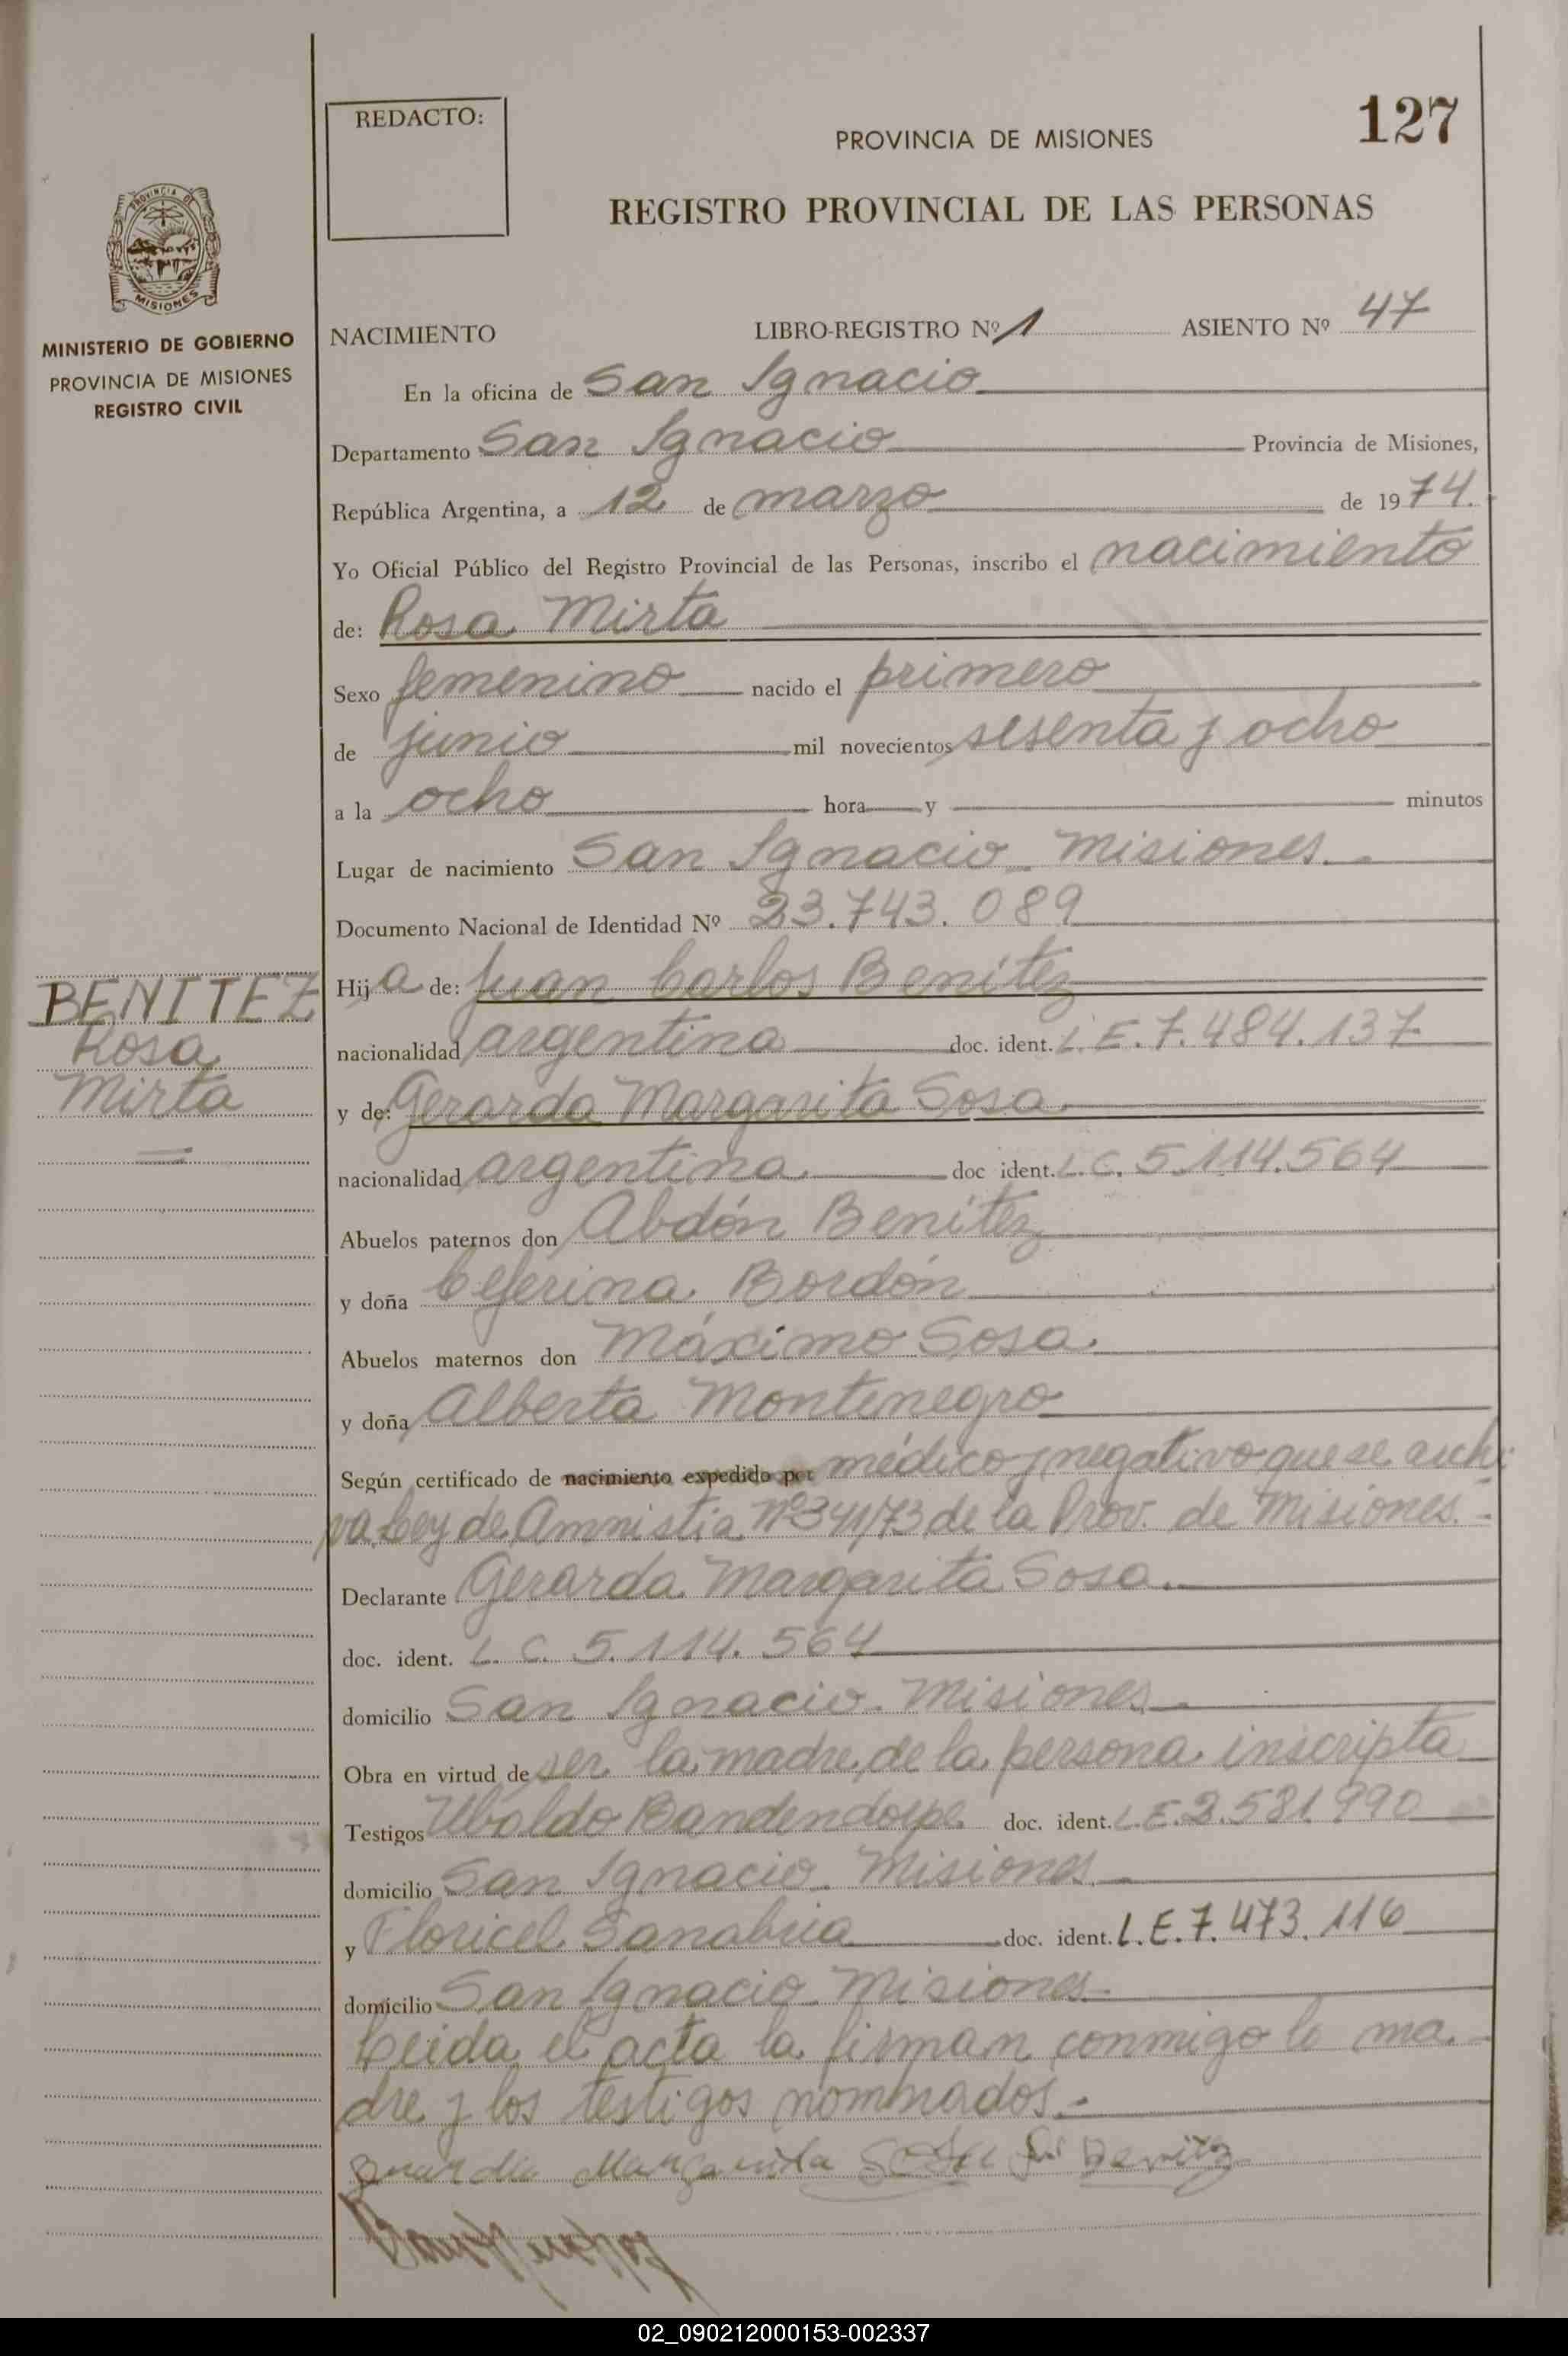 REDACTO:
127
PROVINCIA DE MISIONES
REGISTRO PROVINCIAL DE LAS PERSONAS
PROVINCIA DE
MISIONES
MINISTERIO DE GOBIERNO
PROVINCIA DE MISIONES
REGISTRO CIVIL
NACIMIENTO LIBRO-REGISTRO Nº 1 ASIENTO Nº 47
En la oficina de San Ignacio
Departamento San Ignacio Provincia de Misiones,
República Argentina, a 12 de marzo de 1974.
Yo Oficial Público del Registro Provincial de las Personas, inscribo el nacimiento
de: Rosa Mirta
Sexo femenino nacido el primero
de junio mil novecientos sesenta y ocho
a la ocho hora y minutos
Lugar de nacimiento San Ignacio Misiones.
Documento Nacional de Identidad Nº 23.743.089
BENITEZ
Rosa
Mirta
Hija de: Juan Carlos Benítez
nacionalidad argentina doc. ident. L.E. 7.484.137
y de: Gerarda Margarita Sosa
nacionalidad argentina doc ident. L.C. 5.114.564
Abuelos paternos don Abdón Benítez
y doña Ceferina Bordón
Abuelos maternos don Máximo Sosa.
y doña Alberta Montenegro
Según certificado de nacimiento expedido por médico y negativo que se archi
va. Ley de Amnistia Nº 341/73 de la Prov. de Misiones.-
Declarante Gerarda Margarita Sosa.
doc. ident. L. C. 5.114.564
domicilio San Ignacio. Misiones.
Obra en virtud de ser la madre de la persona inscripta
Testigos Ubaldo doc. ident. L.E. 2.581.990
domicilio San Ignacio. Misiones.
y Floricel Sanabria doc. ident. L.E. 7.473.116
domicilio San Ignacio Misiones
Leida el acta la firman conmigo la ma
dre y los testigos nombrados.-
Margarita Sosa de Benitez
02_090212000153-002337